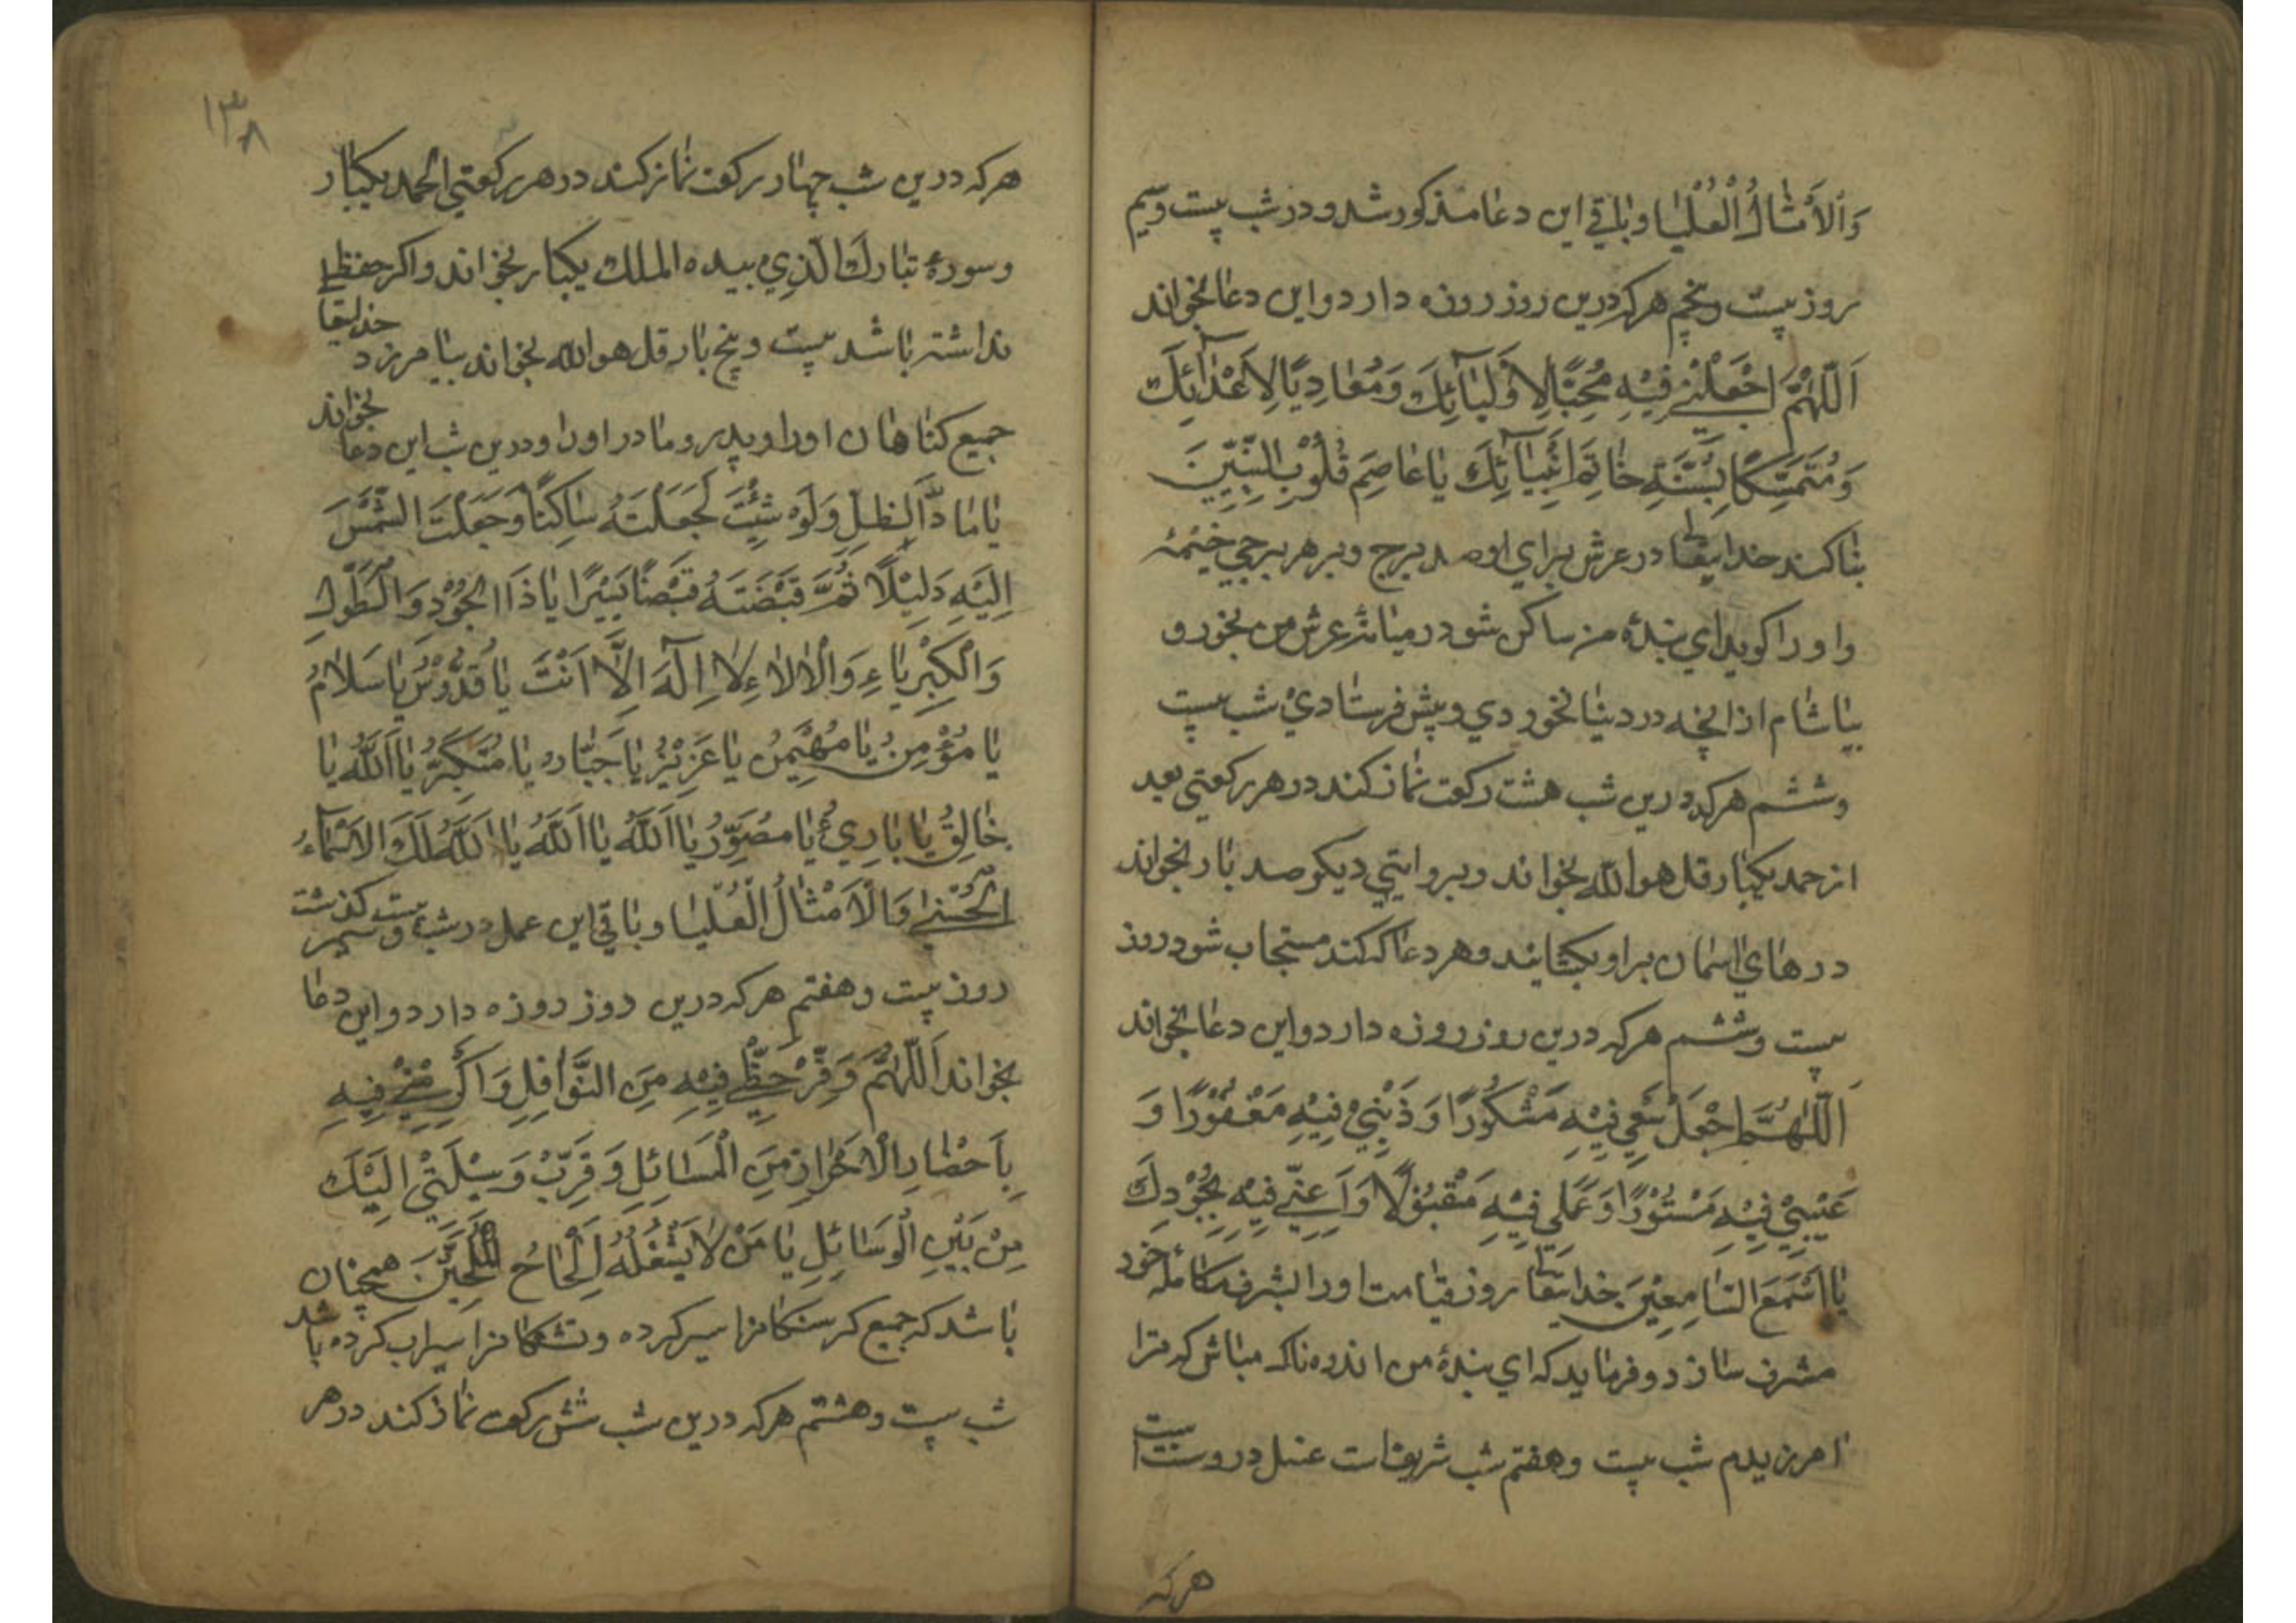 وَالْاَمْثَالُ الْعُلْيَا و باقي اين دعا مذكور شد و در شب بيست وسيم
روز بيست و پنجم هركه درين روز روزه دارد و اين دعا بخواند
اَللّٰهُمَّ اجْعَلْنِي فِيْهِ مُحِبًّا لِاَوْلِيَآئِكَ وَمُعَادِيًا لِاَعْدَآئِكَ
وَمُتَمَسِّكًا بِسُنَّةِ خَاتِمِ اَنْبِيَآئِكَ يَا عَاصِمَ قُلُوْبِ النَّبِيِّيْنَ
بنا كند خدايتعا در عرش براي او صد برج و بر هر برجي خيمهٔ
و اورا كويد اي بندهٔ من ساكن شو در ميانهٔ عرش من بخور و
بياشام از انچه در دينا نخوردي و پيش فرستادي شب بيست
و ششم هركه درين شب هشت ركعت نماز كند در هر ركعتي بعد
از حمد يكبار قل هو الله بخواند و بروايتي ديكر صد بار بخواند
درهاي اسمان بر او بكشايند و هر دعا كه كند مستجاب شود روز
بيست و ششم هركه درين روز روزه دارد و اين دعا بخواند
اَللّٰهُمَّ اجْعَلْ سَعْيِي فِيْهِ مَشْكُوْرًا وَ ذَنْبِيْ فِيْهِ مَغْفُوْرًا وَ
عَيْبِيْ فِيْهِ مَسْتُوْرًا وَعَمَلِي فِيْهِ مَقْبُوْلًا وَ اَعِنِّي فِيْهِ بِجُوْدِكَ
يَا اَسْمَعَ السَّامِعِيْنَ خدايتعا روز قيامت اورا بشرف مكالمهٔ خود
مشرف سازد و فرمايد كه اي بندهٔ من اندوهناك مباش كه ترا
امرزيدم شب بيست و هفتم شب شريفست غسل درو سنت است
هركه
١٣٨
هركه درين شب چهار ركعت نماز كند در هر ركعتي الحمد يكبار
و سورهٔ تبارك الَّذِي بيده الملك يكبار بخواند و اكر حفظ
نداشته باشد بيست و پنج بار قل هو الله بخواند بيامرزد خدايتعا
جميع كناهان اورا و پدر و مادر اورا و درين شب اين دعا بخواند
يَا مَادَّ الظِّلِّ وَلَوْ شِئْتَ لَجَعَلْتَهُ سَاكِنًا وَجَعَلْتَ الشَّمْسَ
اِلَيْهِ دَلِيْلًا ثُمَّ قَبَضْتَهُ قَبْضًا يَسِيْرًا يَا ذَا الْجُوْدِ وَ الطَّوْلِ
وَالْكِبْرِيَاءِ وَالْاٰلَاءِ لَا اِلٰهَ اِلَّا اَنْتَ يَا قُدُّوْسُ يَا سَلَامُ
يَا مُؤْمِنُ يَا مُهَيْمِنُ يَا عَزِيْزُ يَا جَبَّارُ يَا مُتَكَبِّرُ يَا اَللّٰهُ يَا
خَالِقُ يَا بَارِئُ يَا مُصَوِّرُ يَا اَللّٰهُ يَا اَللّٰهُ يَا اَللّٰهُ لَكَ الْاَسْمَآءُ
الْحُسْنٰى وَالْاَمْثَالُ الْعُلْيَا و باقي اين عمل در شب بيست و سيم كذشت
روز بيست و هفتم هركه درين روز روزه دارد و اين دعا
بخواند اَللّٰهُمَّ وَفِّرْ حَظِّيْ فِيْهِ مِنَ النَّوَافِلِ وَ اَكْرِمْنِيْ فِيْهِ
بِاَحْضَارِ الْاَحْرَازِ مِنَ الْمَسَائِلِ وَ قَرِّبْ وَسِيْلَتِيْ اِلَيْكَ
مِنْ بَيْنِ الْوَسَائِلِ يَا مَنْ لَا يَشْغَلُهُ اِلْحَاحُ الْمُلِحِّيْنَ همچنان
باشد كه جميع كرسنكانرا سير كرده و تشنكانرا سيراب كرده باشد
شب بيست و هشتم هركه درين شب شش ركعت نماز كند در هر